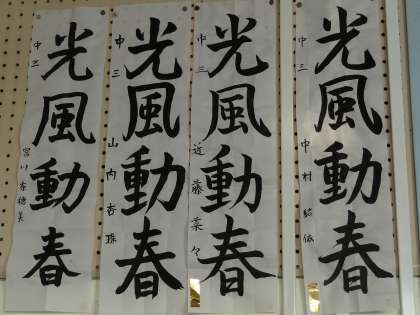 光風動春
中三
近藤菜々
光風動春
中三
山内杏珠
光風動春
中三
光風動春
中三
中村